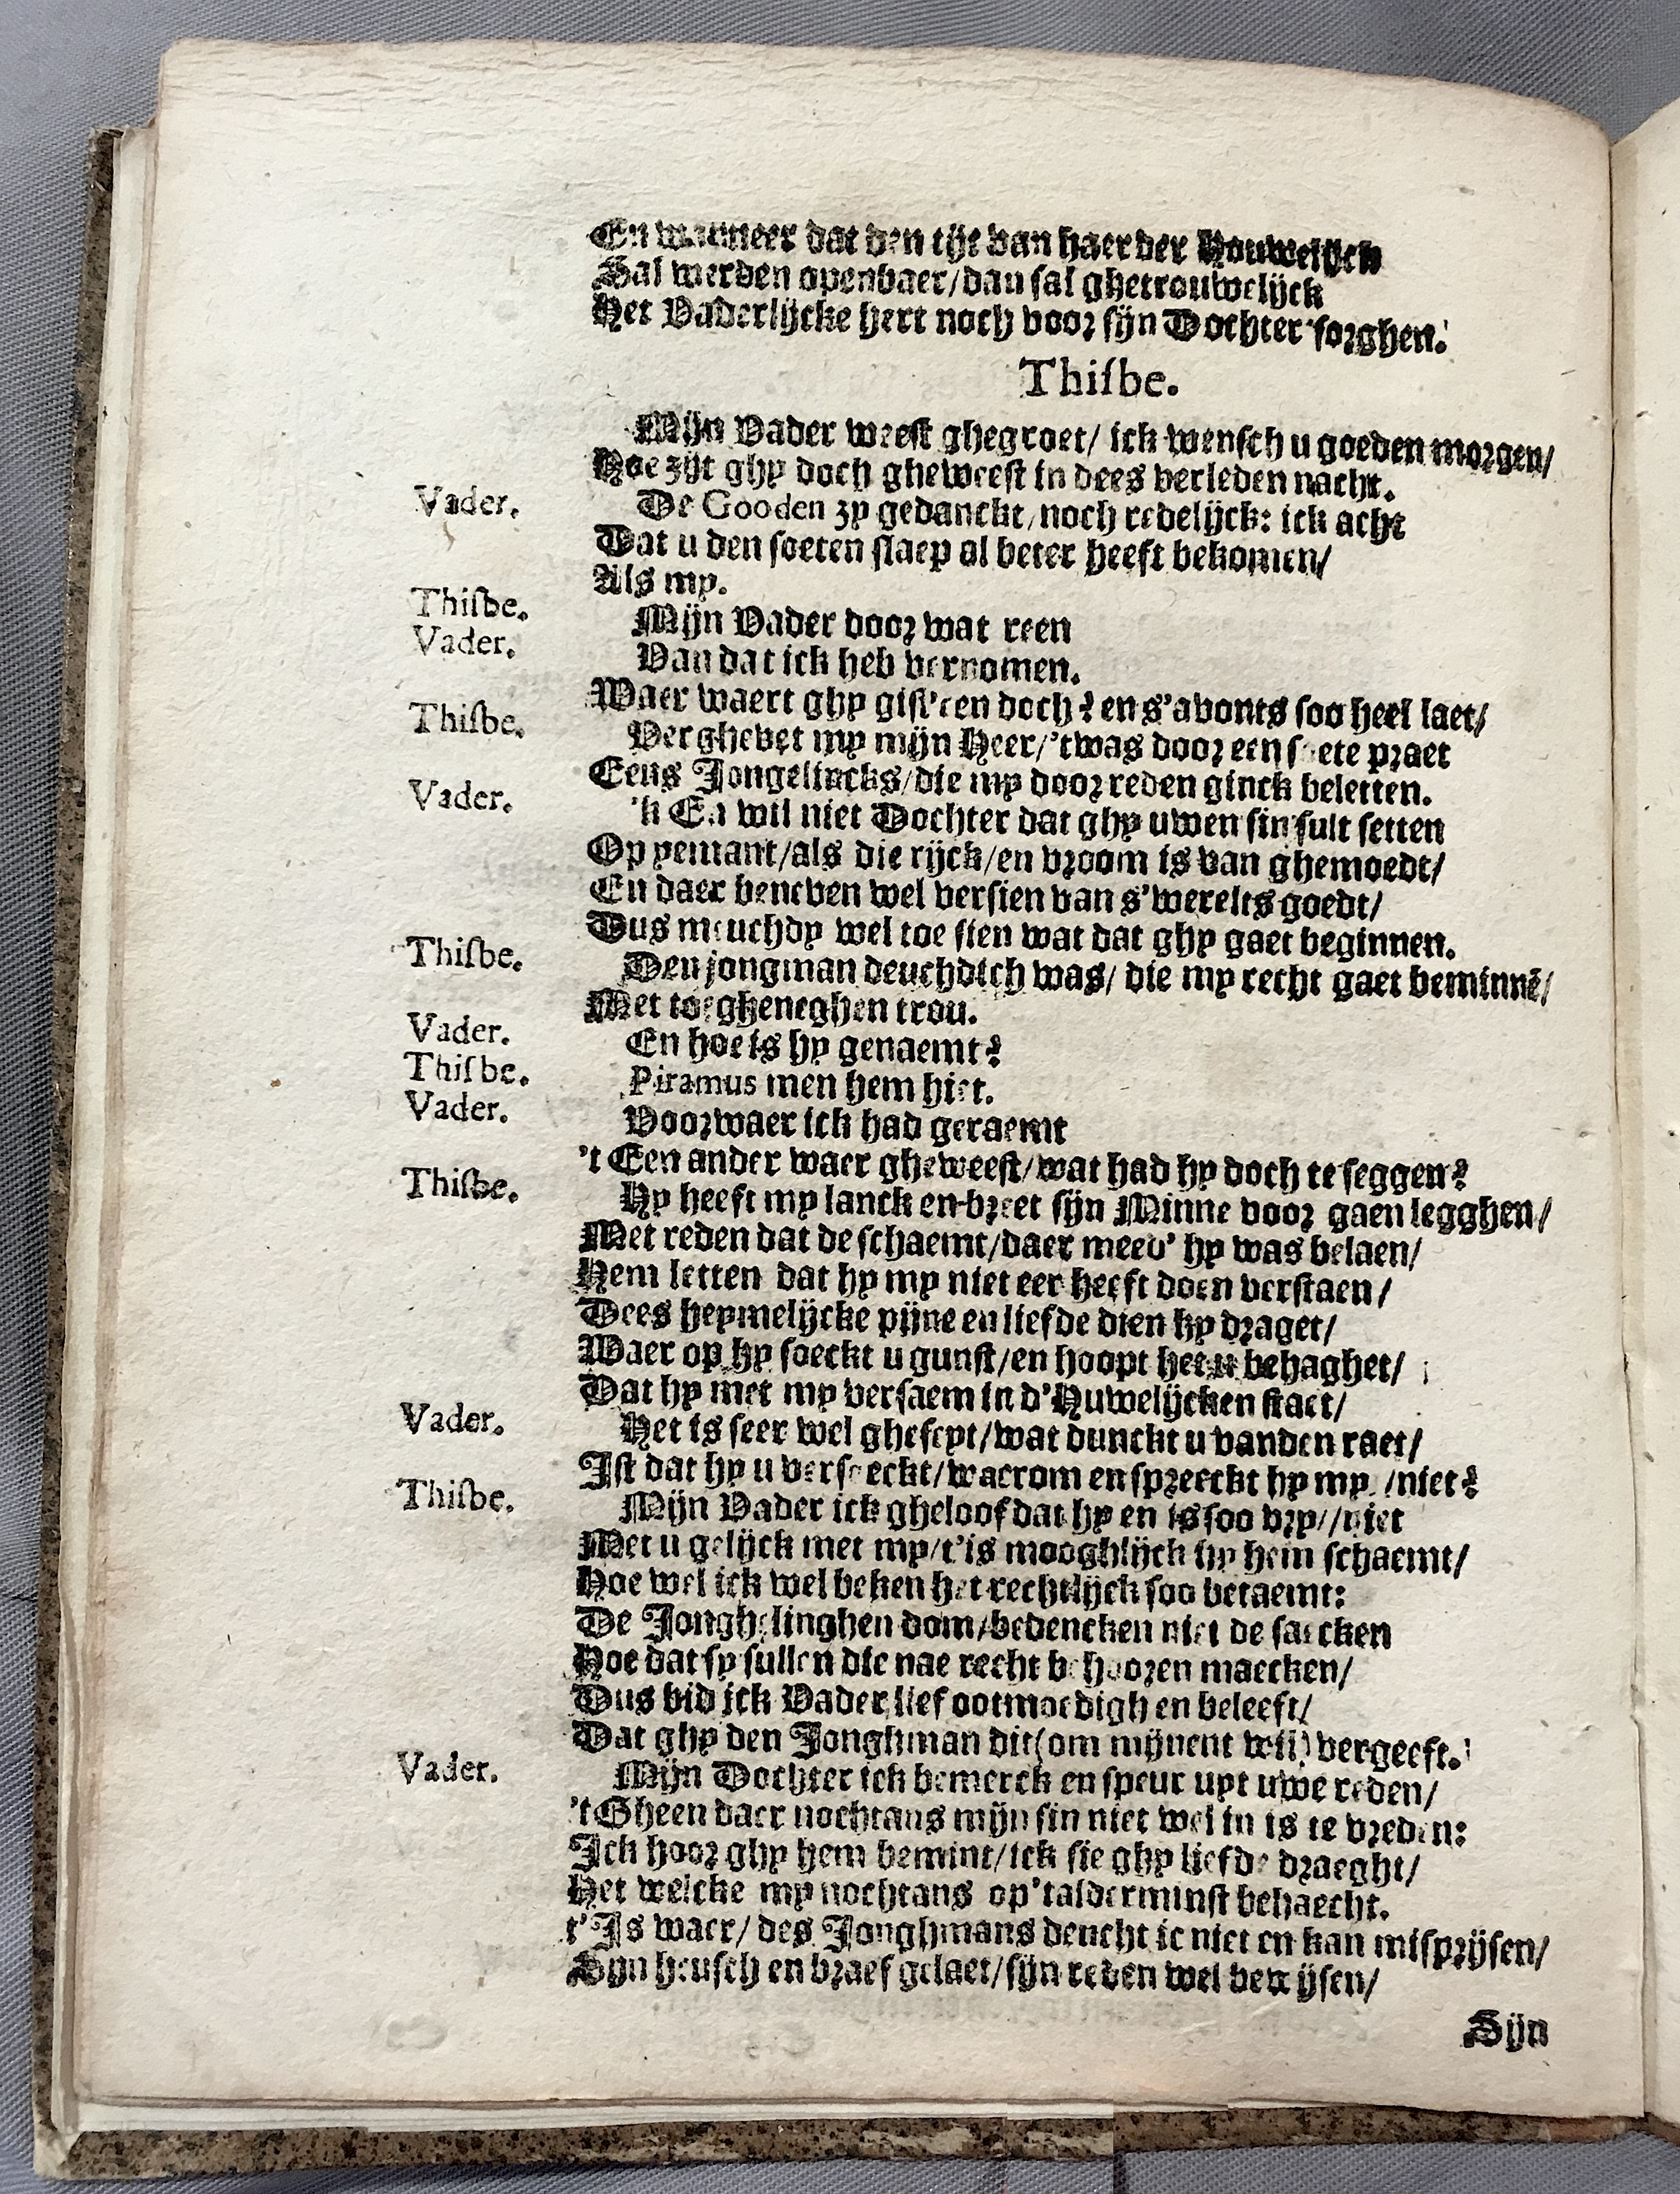 En wanneer dat den tijt van haer der Houwelijck
Sal werden openbaer/dan sal ghetrouwelijck
Het Vaderlijcke hert noch voor sijn Dochter sorghen.
Thisbe.
Mijn Vader weest ghegroet/ ick wensch u goeden morgen/
Hoe zijt ghy doch gheweest in dees verleden nacht.
Vader. De Gooden zy gedanckt/noch redelijck: ick acht
Dat u den soeten slaep al beter heeft bekomen/
Als my.
Thisbe. Mijn Vader door wat reen
Vader. Van dat ick heb vernomen.
Waer waert ghy gist'ren doch? en s'avonts soo heel laet/
Thisbe. Verghevet my mijn Heer/'twas door een soete praet
Eens Jongelincks/die my door reden ginck beletten.
Vader. 'k En wil niet Dochter dat ghy uwen sin sult setten
Op yemant/als die rijck/en vroom is van ghemoedt/
En daer beneven wel versien van s'werelts goedt/
Dus meuchdy wel toe sien wat dat ghy gaet beginnen.
Thisbe. Den jongman deuchdich was/ die my recht gaet beminnē/
Met toegheneghen trou.
Vader. En hoe is hy genaemt?
Thisbe. Piramus men hem hiet.
Vader. Voorwaer ick had geraemt
't Een ander waer gheweest/wat had hy doch te seggen?
Thisbe. Hy heeft my lanck en breet sijn Minne voor gaen legghen/
Met reden dat de schaemt/daer meed' hy was belaen/
Hem letten dat hy my niet eer heeft doen verstaen/
Dees heymelijcke pijne en liefde dien hy draget/
Waer op hy soeckt u gunst/en hoopt het u behaghet/
Dat hy met my versaem in d'Huwelijcken staet/
Vader. Het is seer wel gheseyt/wat dunckt u vanden raet/
Ist dat hy u versoeckt/waerom en spreeckt hy my /niet?
Thisbe. Mijn Vader ick gheloof dat hy en is soo vry//niet
Met u gelijck met my/t'is mooghlijck hy hem schaemt/
Hoe wel ick wel beken het rechtlijck soo betaemt:
De Jonghelinghen dom/bedencken niet de saecken
Hoe dat sy sullen die nae recht behooren maecken/
Dus bid ick Vader lief ootmoedigh en beleeft/
Dat ghy den Jonghman dit(om mijnent wil) vergeeft.
Vader. Mijn Dochter ick bemerck en speur uyt uwe reden/
't Gheen daer nochtans mijn sin niet wel in is te vreden:
Ick hoor ghy hem bemint/ick sie ghy liefde draeght/
Het welcke my nochtans op'talderminst behaecht.
t'Is waer/ des Jonghmans deucht ic niet en kan misprijsen/
Sijn heusch en braef gelaet/sijn reden wel bewijsen/
Sijn